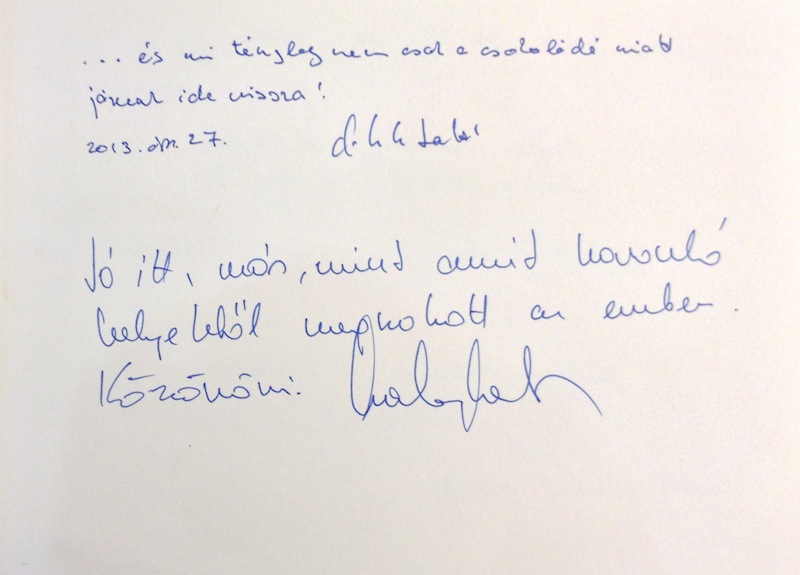 ... és mi tényleg nem csak a csokoládé miatt
járunk ide vissza!
2013. okt. 27.
Jó itt, más, mint amit hasonló
helyektől megszokott az ember.
Köszönöm: